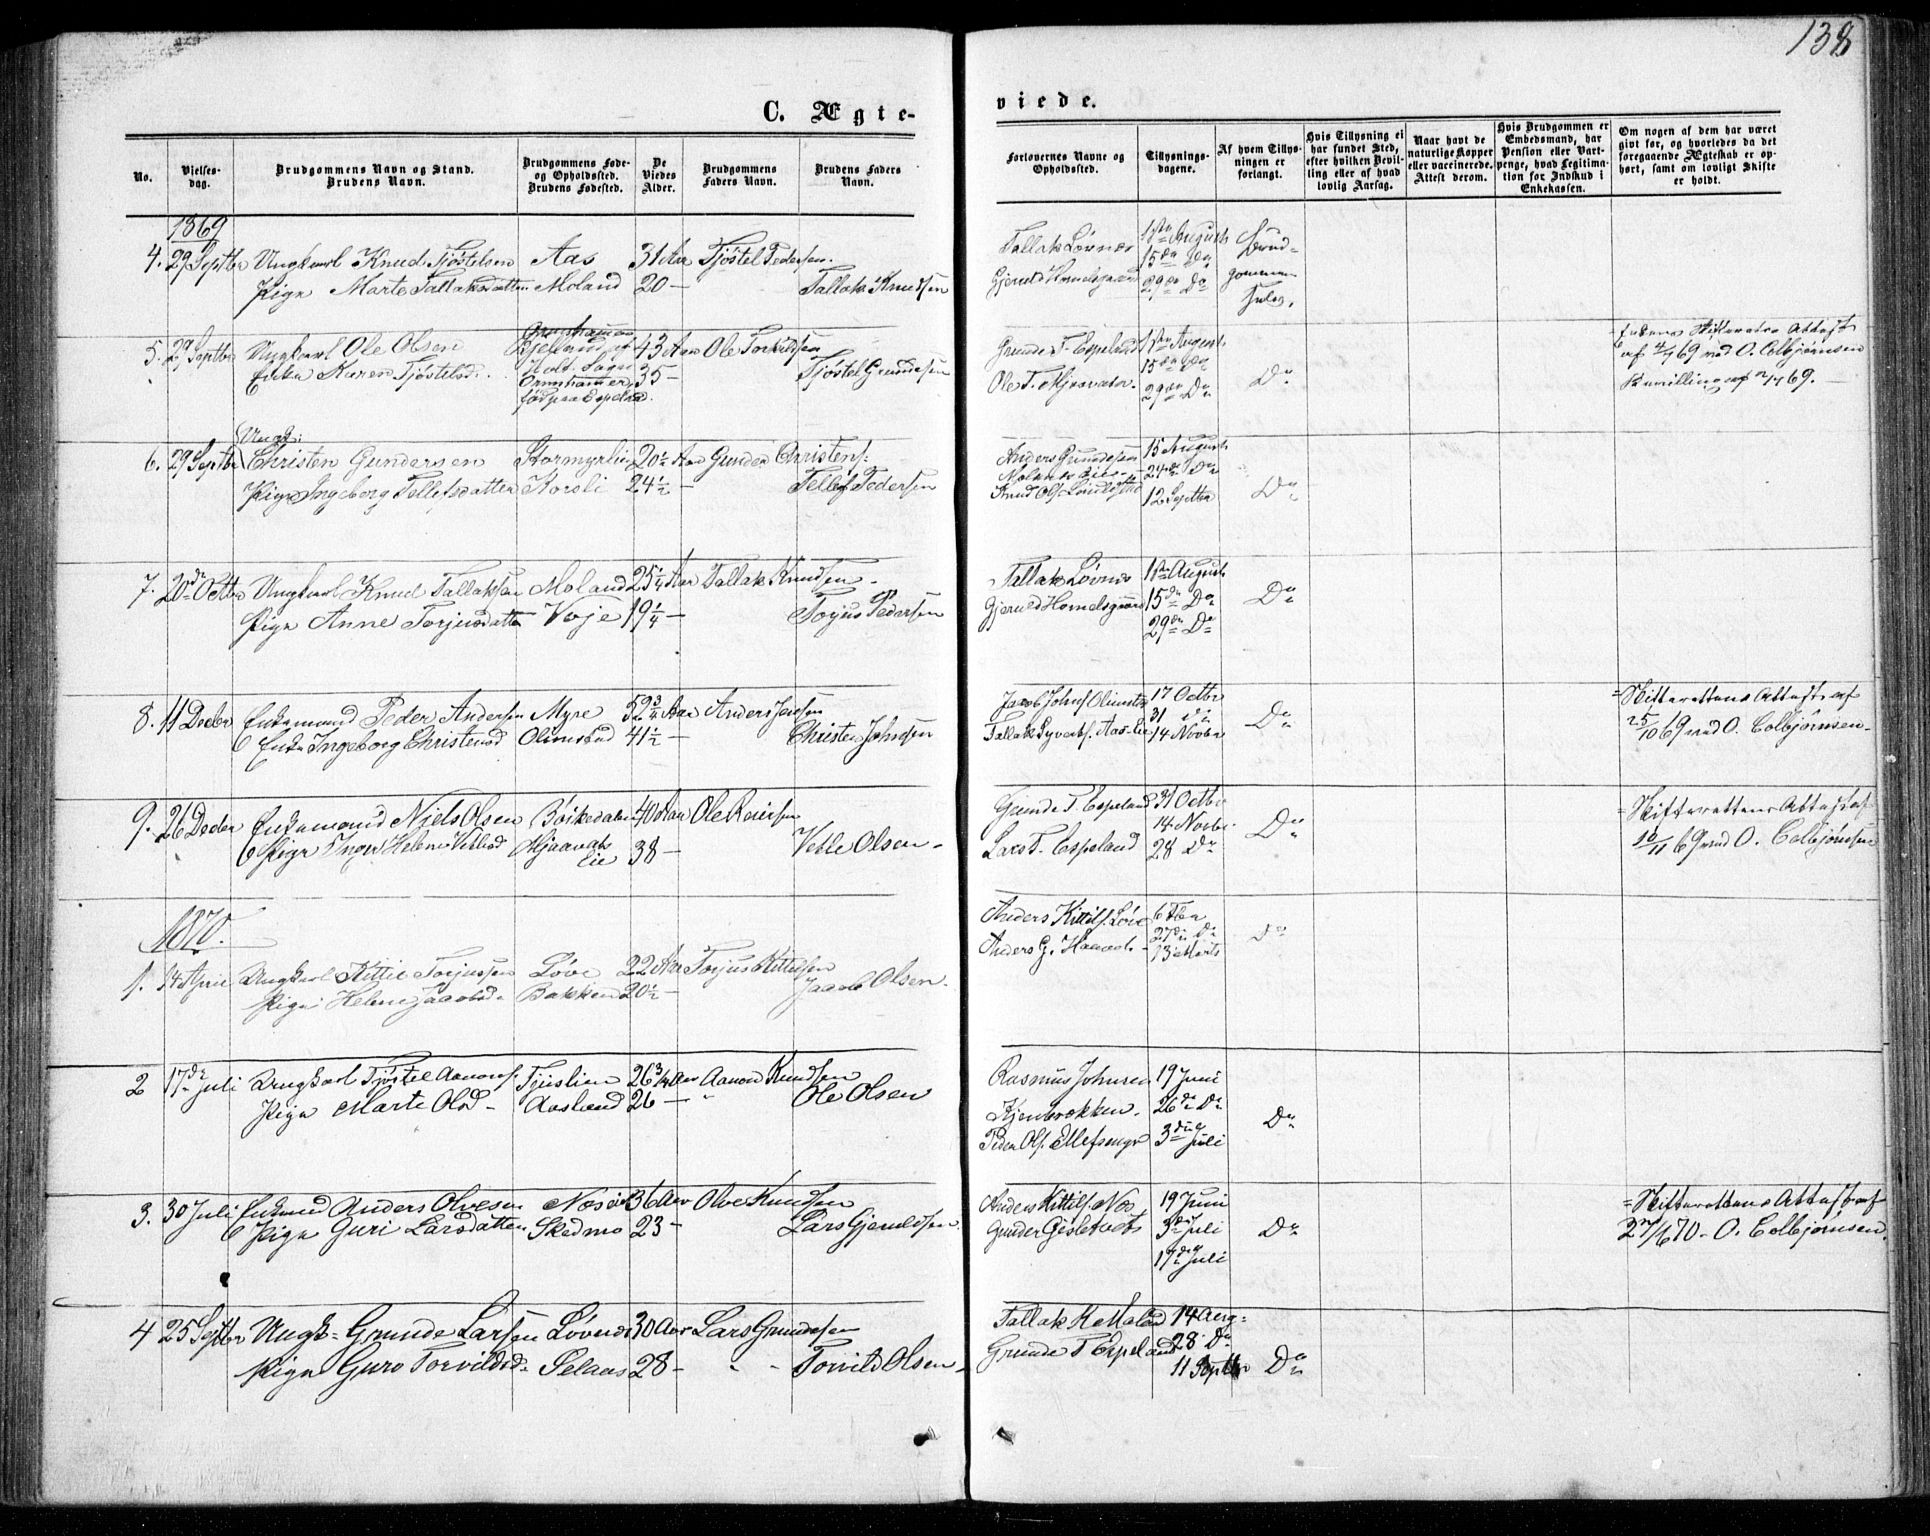 138
C. Ægte-
viede.
No.
Vielses-
dag.
Brudgommens Navn og Stand.
Brudens Navn.
Brudgommens Føde-
og Opholdssted.
Brudens Fødested.
De
Viedes
Alder.
Brudgommens
Faders Navn.
Brudens Faders
Navn.
Forlovernes Navne og
Opholdssted.
Tillysnings-
dagene.
Af hvem Tillys-
ningen er
forlangt.
Hvis Tillysning ei
har fundet Sted,
efter hvilken Bevil-
ling eller af hvad
lovlig Aarsag.
Naar havt de
naturlige Kopper
eller vaccinerede.
Attest derom.
Hvis Brudgommen er
Embedsmand, har
Pension eller Vart-
penge, hvad Legitima-
tion for Indskud i
Enkekassen.
Om nogen af dem har været
givt før, og hvorledes da det
foregaaende Ægteskab er op-
hørt, samt om lovligt Skifte
er holdt.
1869
4. 29 Septbr Ungkarl Knud Tjøstelsen Aas 31 Aar Tjøstel Pedersen.
Pige Marte Tallaksdatter Moland 20 — Tallak Knudsen
Tallak Løvnæs 1ste August
Gjeruld Homelsgaard 15de Do
29de Do
Brud-
gommen
5. 29 Septbr Ungkarl Ole Olsen 43 Aar Ole Torkildsen
Enke Karen Tjøstelsd. Holt Sogn 35 — Tjøstel Grundesen
Ormshammer
fød paa Espeland.
Grunde T. Espeland 1ste August
15de Do
Ole T. Mjosvatn. 29de Do
Do
Enkens Skifterets Attest
af 4/7 69 med O. Colbjørnsen
69.
6. 29 Septbr Ungk:
Christen Gundersen Stormyrlie 20½ Aar Gunder Christens.
Pige Ingeborg Tellefsdatter Korsli 24½ — Tellef Pedersen
Anders Gundesen 15 August
24de Do
Knud Ols. 12 Septbr
Do
7. 20de Octbr Ungkarl Knud Tallaksen Moland 25¼ Aar Tallak Knudsen.
Pige Anne Torjusdatter Voje 19¼ — Torjus Pedersen
Tallak Løvnæs 1ste August
Gjeruld Homelsgaard 15de Do
29de Do
Do
8. 11 Decbr Enkemand Peder Andersen Myre 52¾ Aar Anders Jensen
Enke Ingeborg Christensd Olimstad 41½ — Christen Johnsen
Jacob Johns. Olimstad 17 Octbr
31 Do
Tallak Syverts. Aas-Eie 14 Novbr
Do
Skifterettens Attest af
25/10 69 med O. Colbjørnsen.
9. 26 Decbr Enkemand Niels Olsen Bøikedalen 40 Aar Ole Reiersen
Pige Inger Helene Vetlesd Mjaavats 38 — Vetle Olsen
Eie
Grunde T. Espeland 31 Octbr
14 Novbr.
Lars T. Espeland 28 Do
Do
Skifterettens Attest af
10/11 69 med O. Colbjørnsen
1870.
1. 14 April Ungkarl Kittil Torjussen Løve 22 Aar Torjus Kittilsen
Pige Helene Jacobsd. Bakken 20½ — Jacob Olsen.
Anders Kittils. Løve 6 Fbr
27de Do
Anders G. Haavat 13 Marts
Do
2 17de Juli Ungkarl Tjøstel Aanons. Tjuslien 26¾ Aar Aanon Knudsen
Pige Marte Olsd Aasland 26 — Ole Olsen
Rasmus Johnsen 19 Juni
Kjenbrokken. 26de Do
Peder Ols. Ellefsengr 3die Juli
Do
3. 30 Juli Enkemd Anders Olvesen Næs 36 Aar Olve Knudsen
Pige Guri Larsdatter Skedmo 23 — Lars Gjeruldsen.
Anders Kittils. Næs 19 Juni
Gunder Gislefoss 3die Juli
17de Juli
Do
Skifterettens Attest af
27/6 70 - O. Colbjørnsen.
4 25 Septbr Ungk- Grunde Larsen Løvnæs 30 Aar Lars Grundesen
Pige Guro Torvildsd. Selaas 28 — Torvild Olsen
Tallak K. Moland 14 Aug-
Grunde T. Espeland 28 Do
11 Septbr
Do